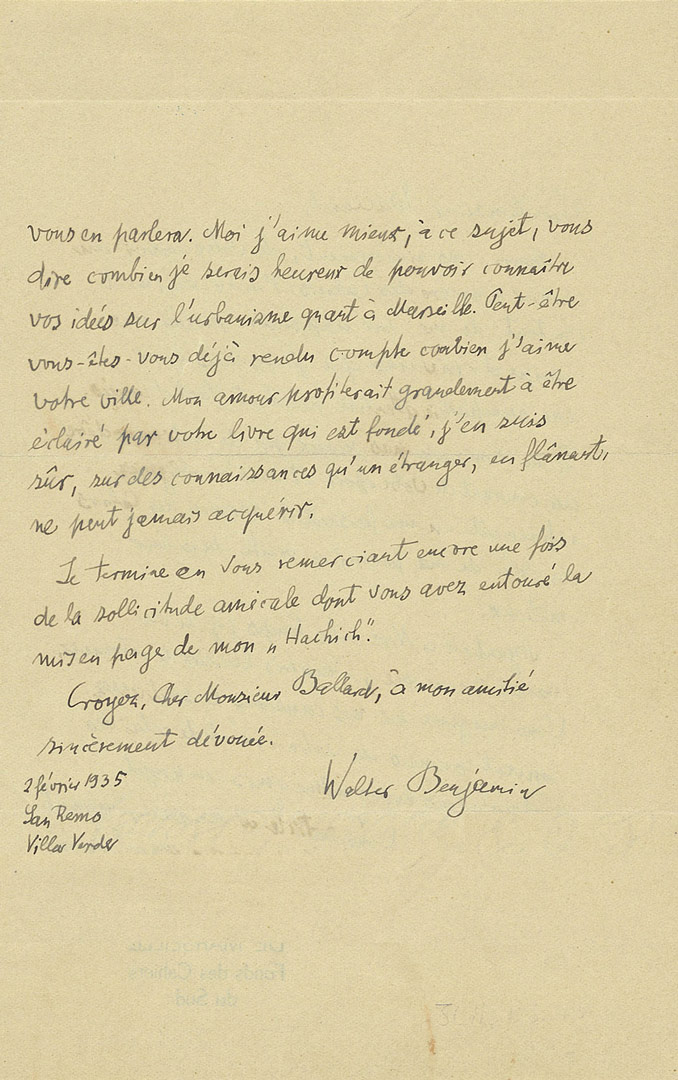 vous en parlera. Moi j'aime mieux, à ce sujet, vous
dire combien je serais heureux de pouvoir connaître
vos idées sur l'urbanisme quant à Marseille. Peut-être
vous-êtes-vous déjà rendu compte combien j'aime
votre ville. Mon amour profiterait grandement à être
éclairé par votre livre qui est fondé, j'en suis
sûr, sur des connaissances qu'un étranger, en flânant,
ne peut jamais acquérir.
Je termine en vous remerciant encore une fois
de la sollicitude amicale dont vous avez entouré la
mis en page de mon „Hachich“.
Croyez, Cher Monsieur Ballard, à mon amitié
sincèrement dévouée.
2 février 1935
Walter Benjamin
San Remo
Villa Verde
Fonds des Cahiers
du Sud